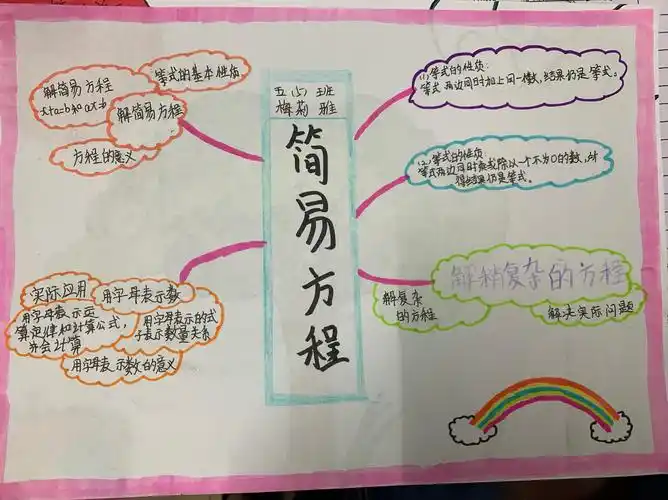 五(5)班
梅莉雅
简易方程
解简易方程
x+a=b和ax=b
等式的基本性质
解简易方程
方程的意义
实际应用
用字母表示数
用字母表示运
算定律和计算公式,
并会计算
用字母表示的式
子表示数量关系
用字母表示数的意义
(1)等式的性质:
等式两边同时加上同一个数,结果仍是等式。
(2)等式的性质:
等式两边同时乘或除以一个不为0的数,所
得结果仍是等式。
解稍复杂的方程
解复杂
的方程
解决实际问题